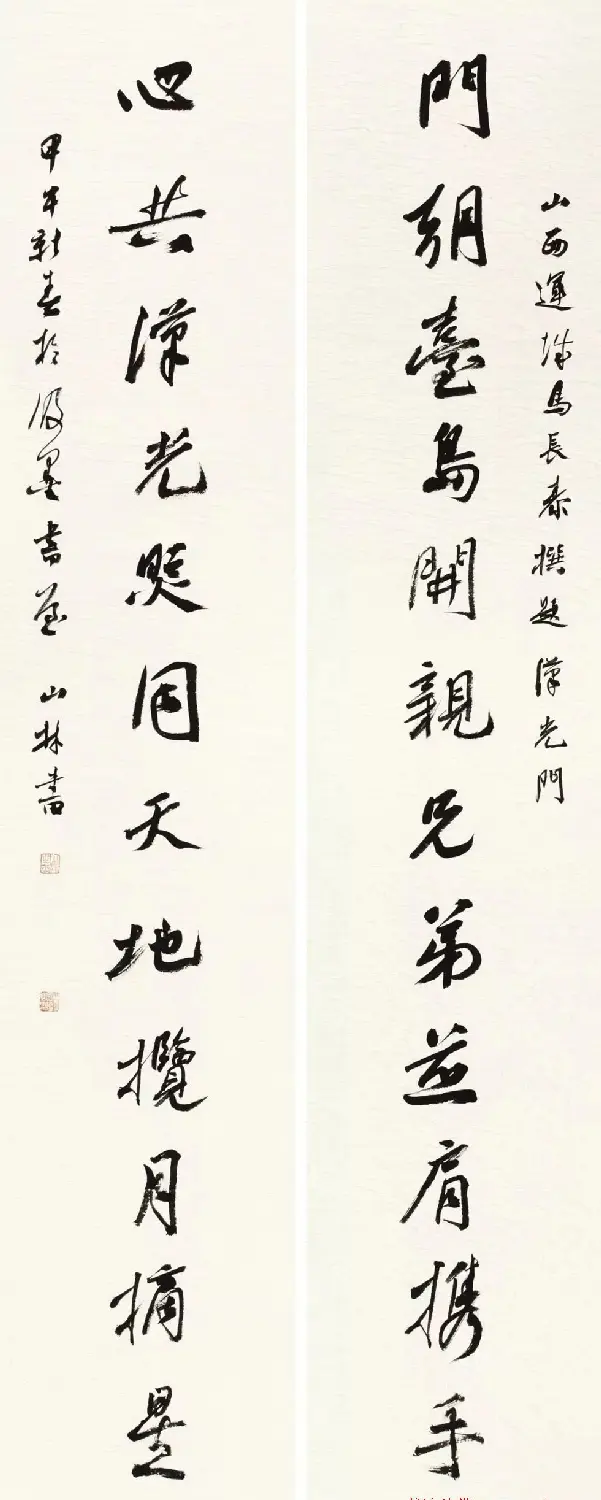 山西運城馬長泰撰題 漢光門
門朝臺島開親兄弟並肩携手
心共漢光照同天地攬月摘星
甲午新春於墨書 山林書